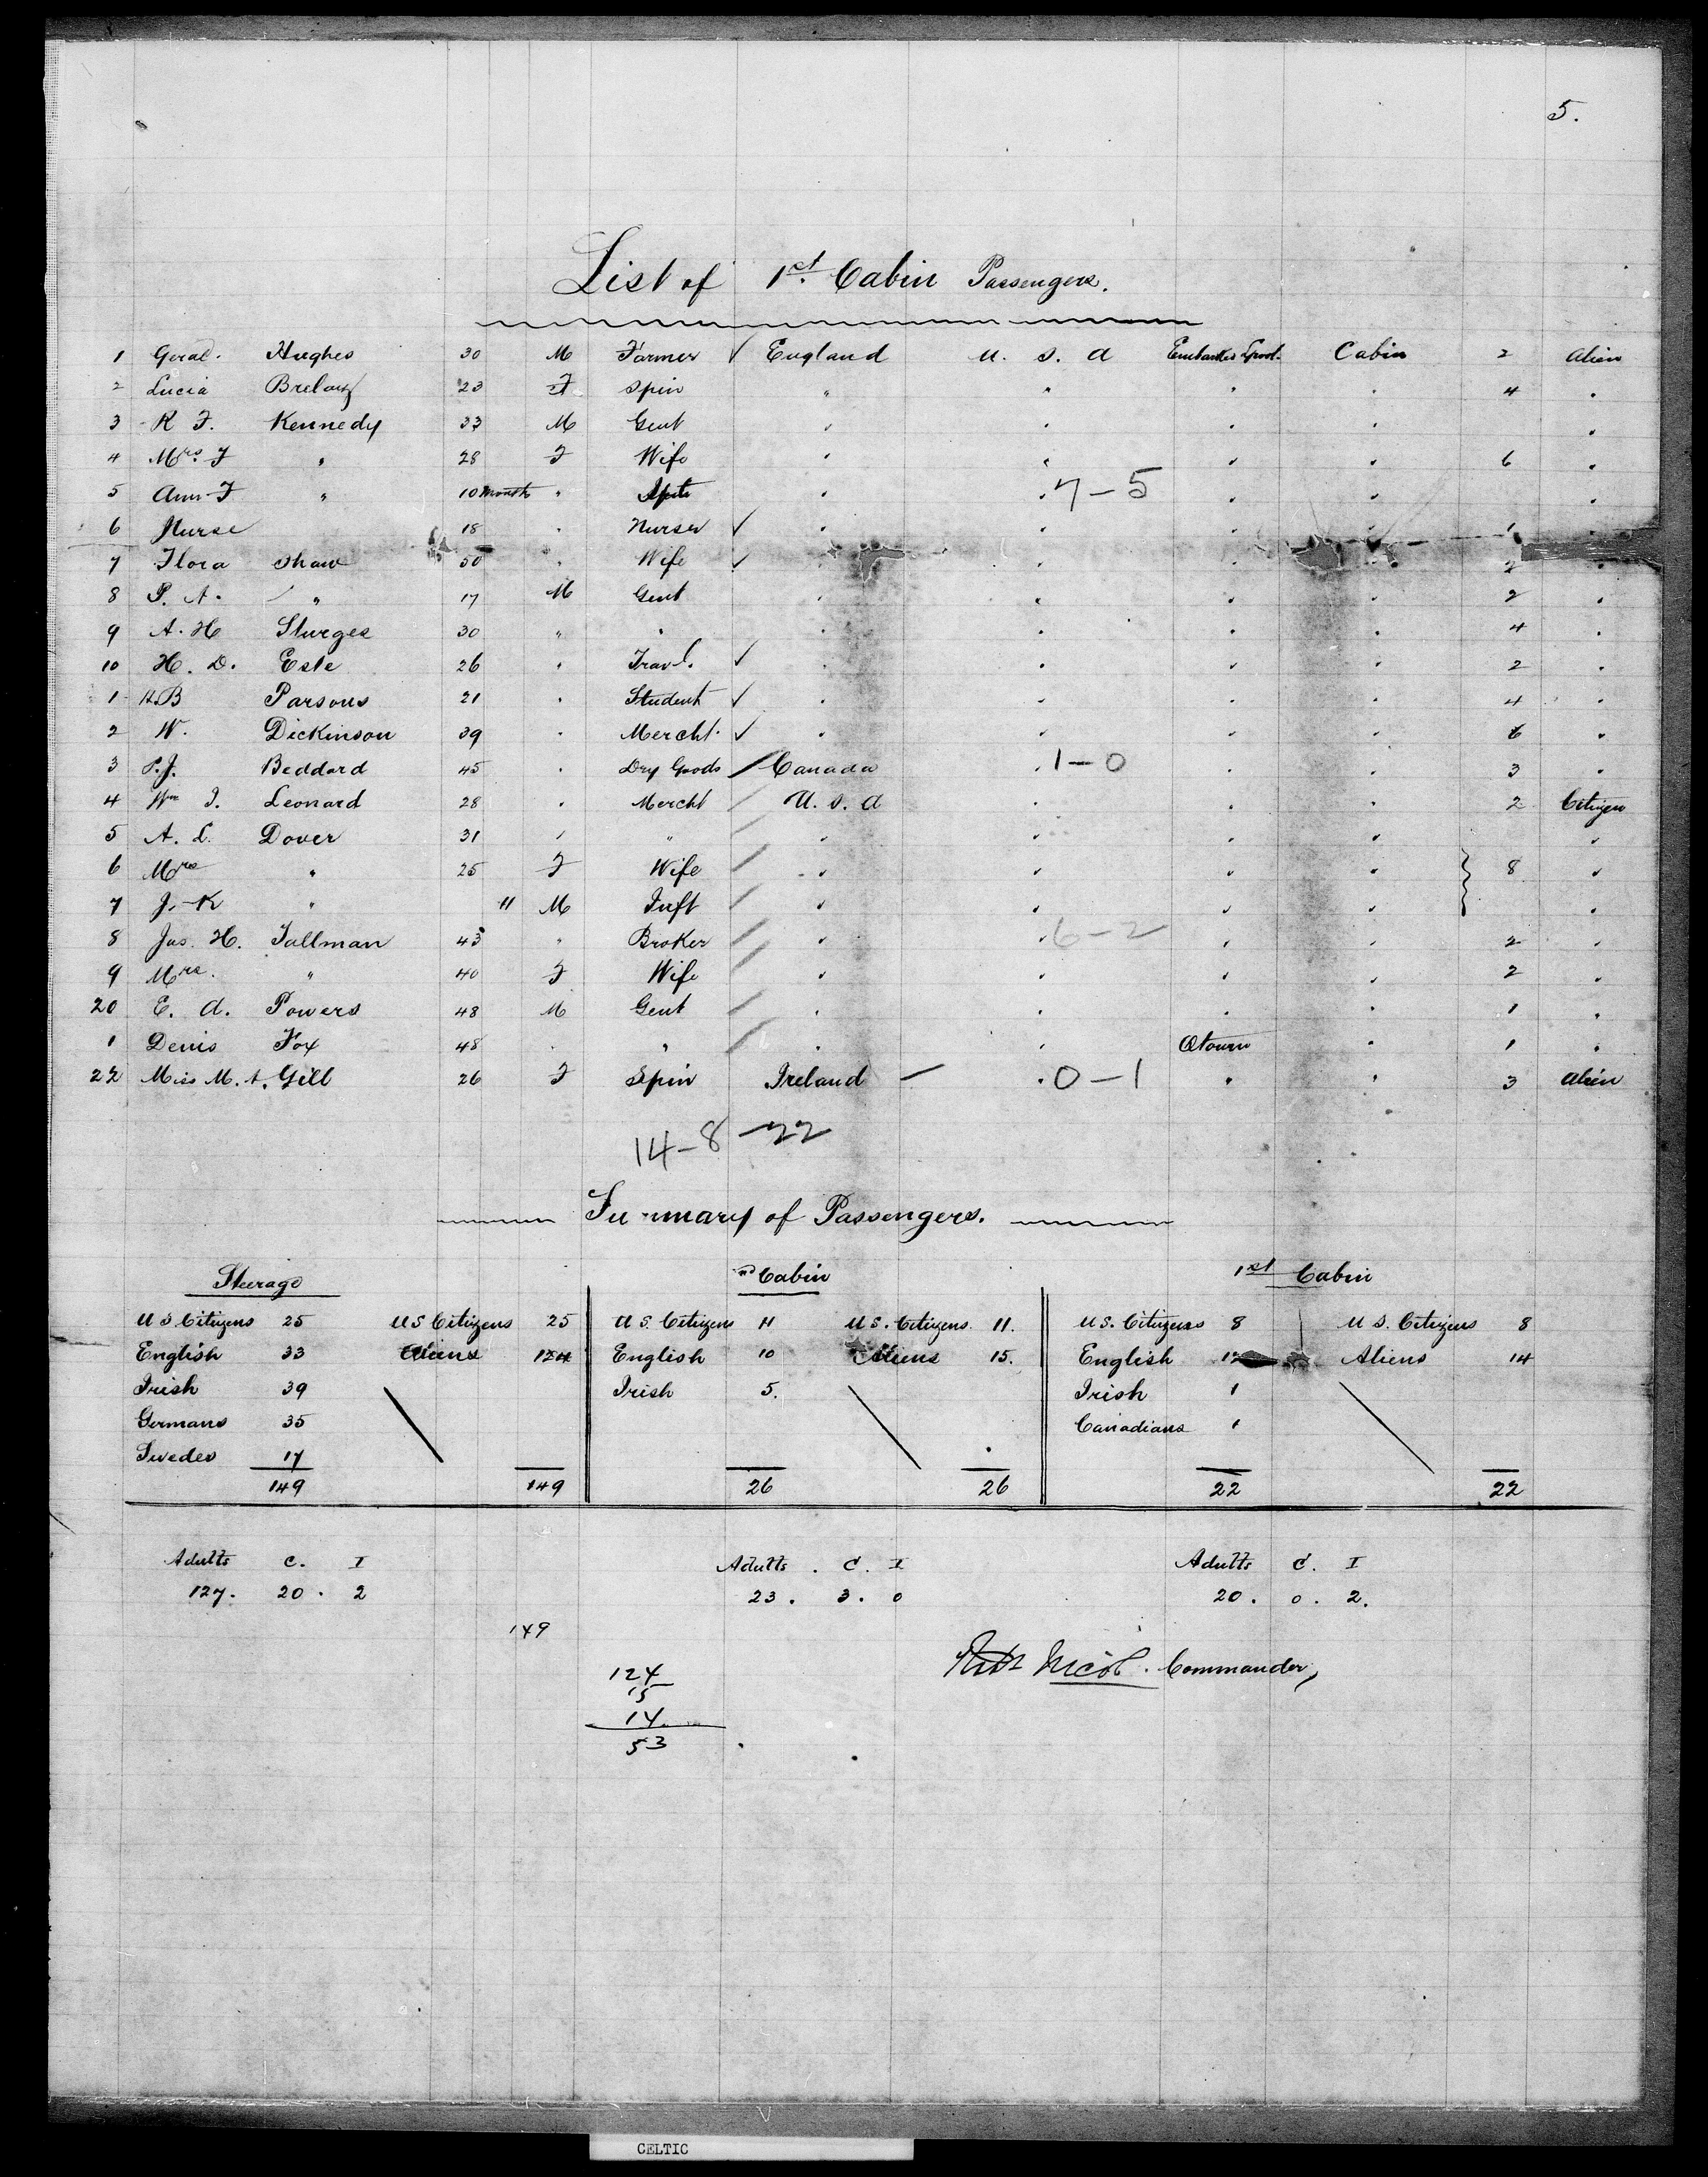 5.
List of 1st. Cabin Passengers.
1 Geral. Hughes 30 M Farmer ✓ England U. S. A Embarked Lpool. Cabin 2 Alien
2 Lucia 23 F Spin " " " " 4 "
3 R F. Kennedy 33 M Gent " " " " "
4 Mrs. F " 28 F Wife " " " " 6 "
5 Ann F " 10 Months " " " 7-5 " " "
6 Nurse 18 " Nurse ✓ " " " " 1 "
7 Flora Shaw 50 " Wife ✓ " " " " 2 "
8 P. A. " 17 M Gent " " " " 2 "
9 A. H Sturges 30 " " " " " " 4 "
10 H. D. Este 26 " Travl. ✓ " " " " 2 "
1 H.B Parsons 21 " Student ✓ " " " " 4 "
2 W. Dickinson 39 " Mercht. ✓ " " " " 6 "
3 P.J. Beddard 45 " Dry Goods / Canada " 1-0 " " 3 "
4 Wm J. Leonard 28 " Mercht / U. S. A " " " 2 Citizen
5 A. L. Dover 31 " " / " " " " "
6 Mrs " 25 F Wife / " " " " 8 "
7 J. K " 11 M Inft / " " " " "
8 Jas. H. Tallman 43 " Broker / " " 6-2 " " 2 "
9 Mrs. " 40 F Wife / " " " " 2 "
20 E. A. Powers 48 M Gent / " " " " 1 "
1 Denis Fox 48 " " / " " Qtown " 1 "
22 Miss M. A. Gill 26 F Spin Ireland — " 0-1 " " 3 Alien
14-8-22
Summary of Passengers.
Steerage nd Cabin 1st Cabin
U S. Citizens 25 U S Citizens 25 U S. Citizens 11 U S. Citizens. 11. U S. Citizens 8 U S. Citizens 8
English 33 Aliens 124 English 10 Aliens 15. English 12 Aliens 14
Irish 39 Irish 5. Irish 1
Germans 35 Canadians 1
Swedes 17
149 149 26 26 22 22
Adults C. I Adults . C. I Adults C. I
127. 20. 2 23. 3. 0 20. 0. 2.
149
Nicol. Commander,
124
15
14
53
CELTIC